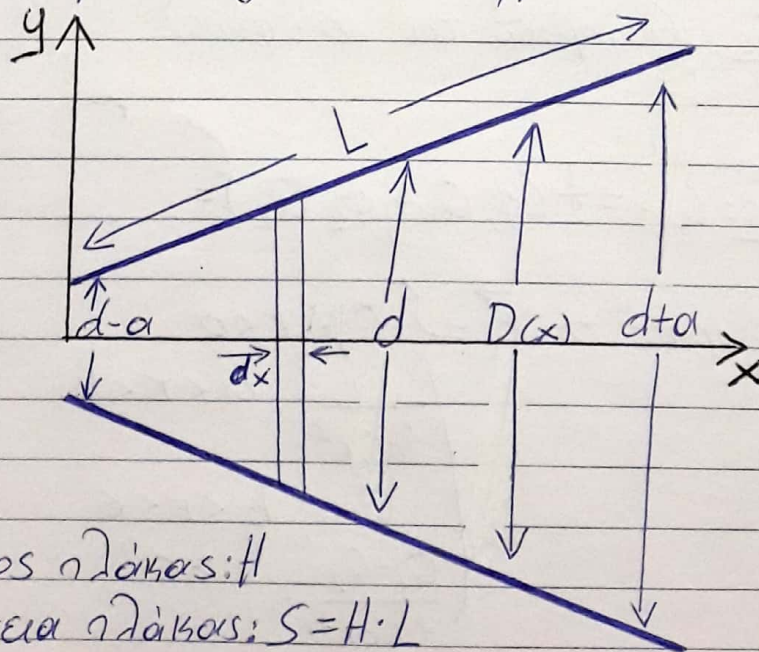 y
L
d-a
dx
d
D(x)
d+a
x
ος πλάκας: H
εια πλάκας: S = H·L